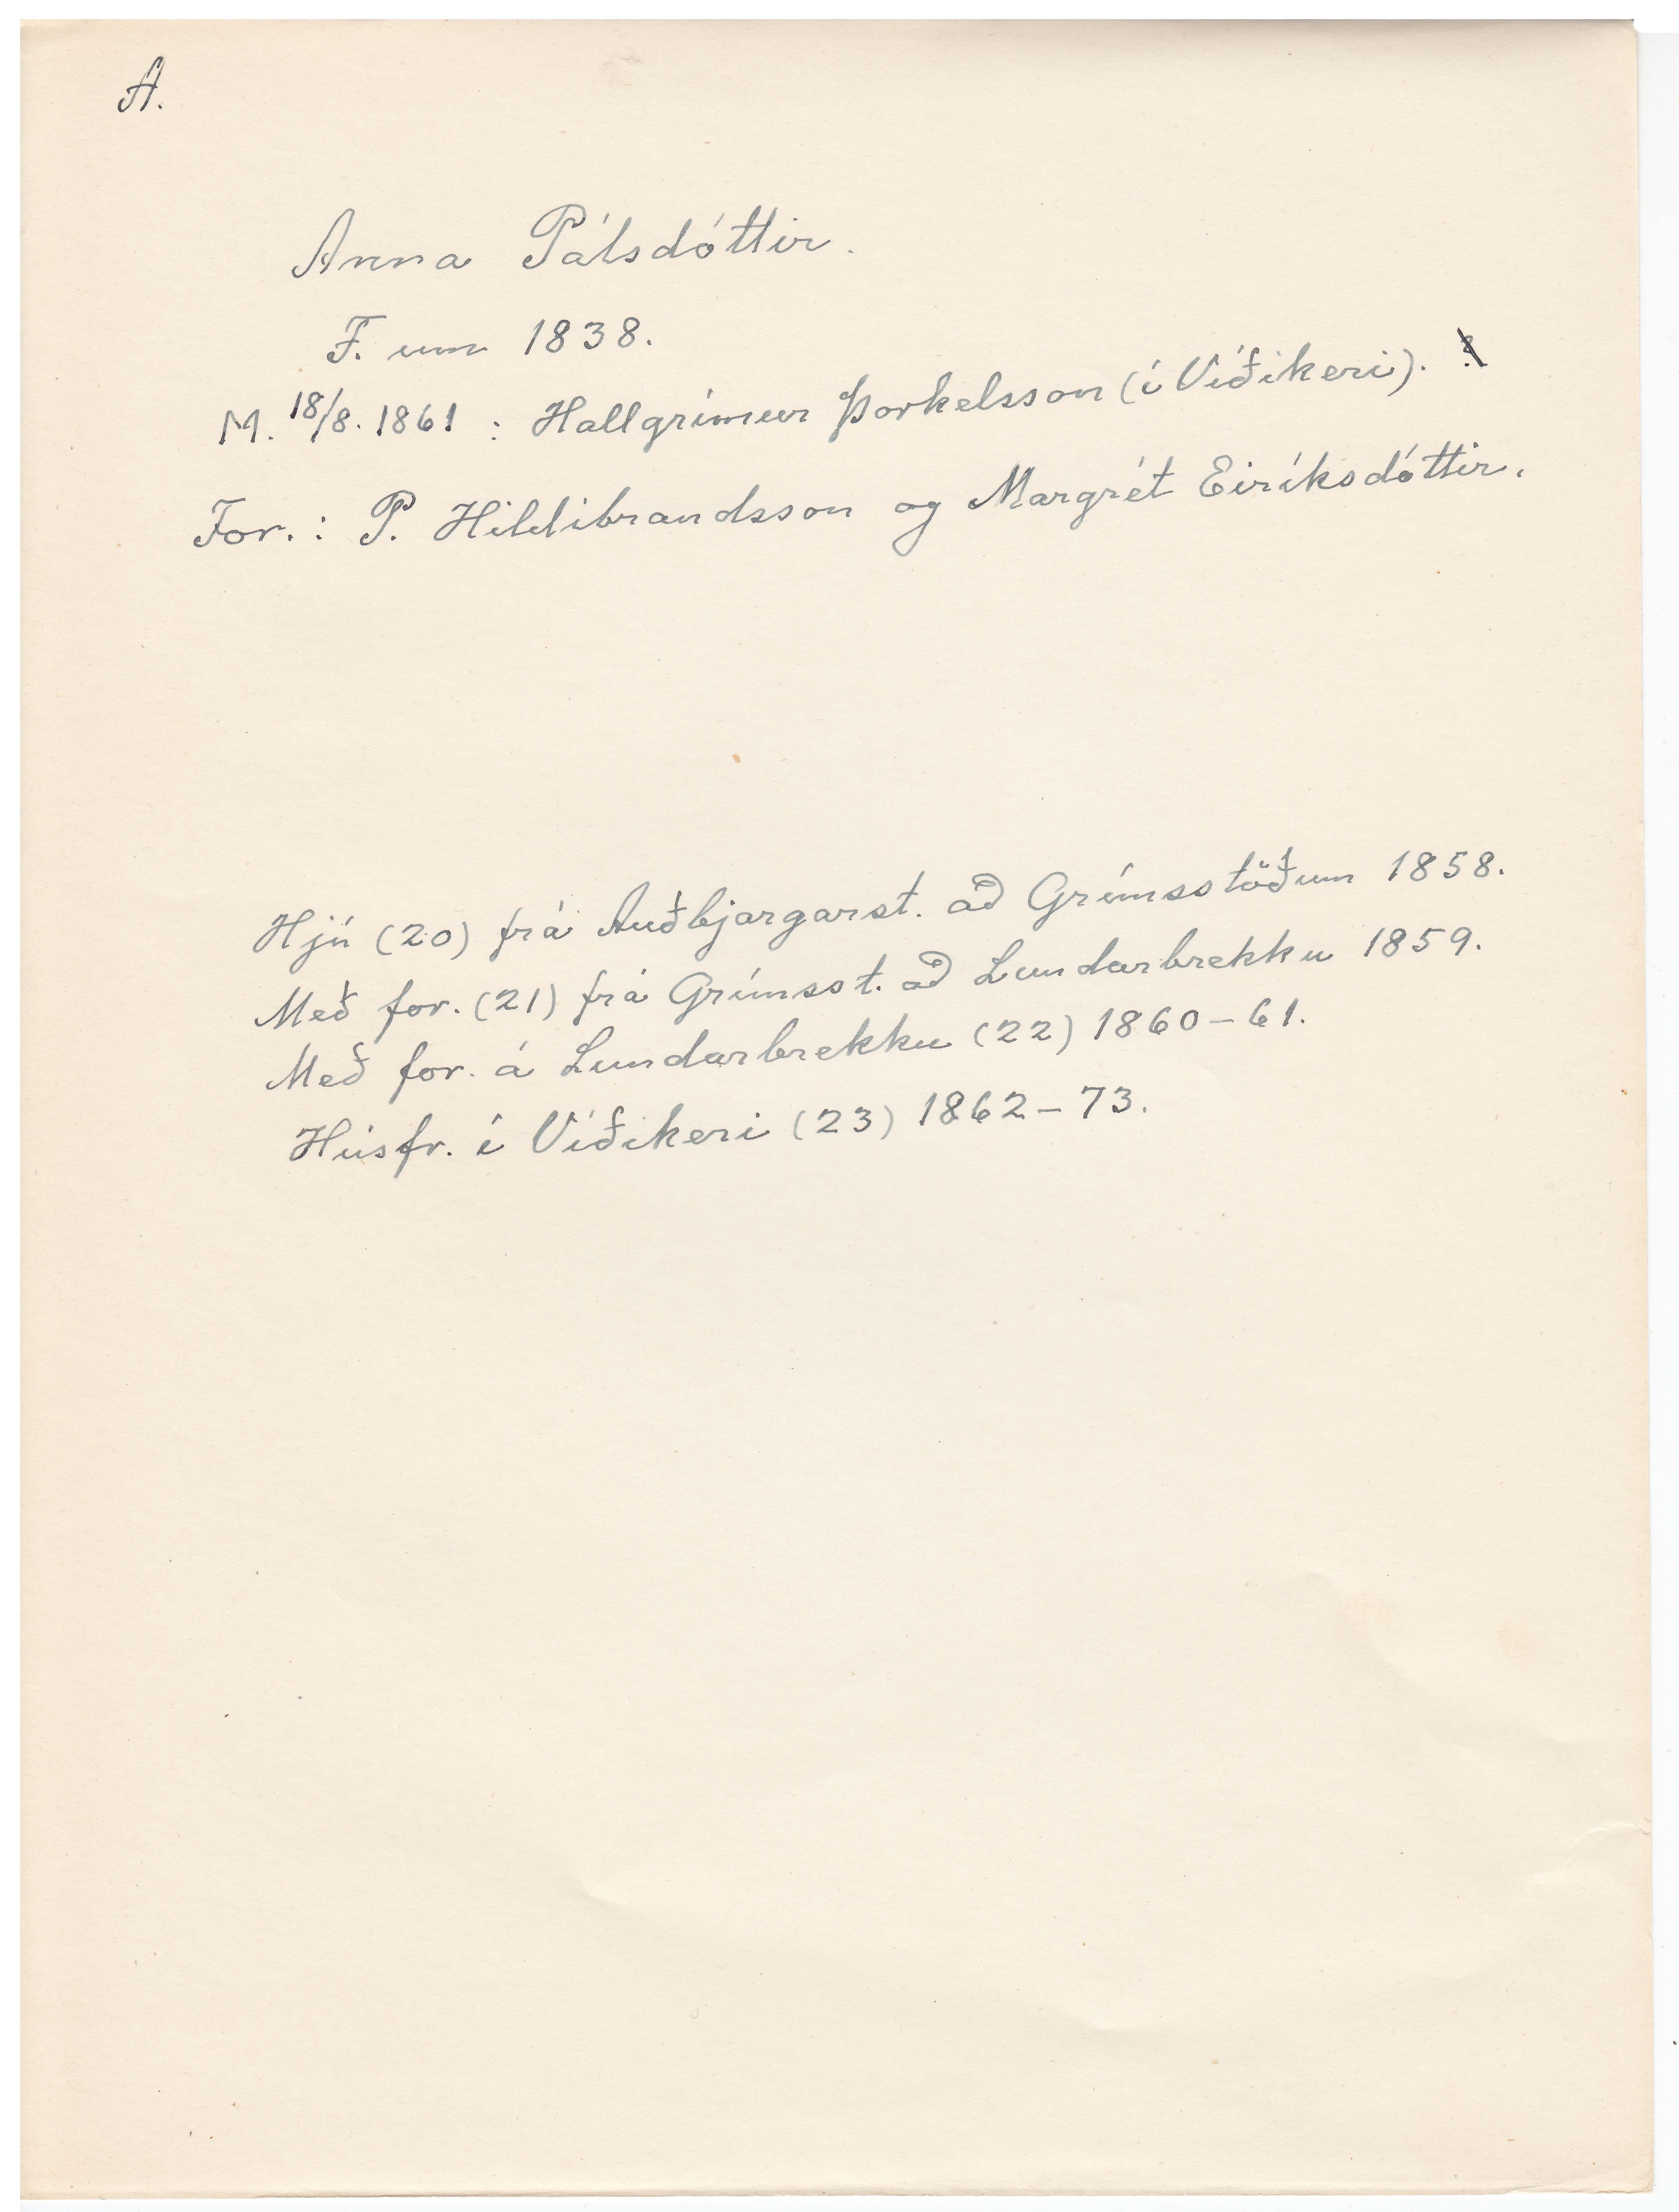 A.
Anna Pálsdóttir.
F. um 1838.
M. 18/8. 1861 : Hallgrímur Þorkelsson (í Víðikeri).
For. : P. Hildibrandsson og Margrét Eiríksdóttir.
Hjú (20) frá Auðbjargarst. að Grímsstöðum 1858.
Með for. (21) frá Grímsst. að Lundarbrekku 1859.
Með for. á Lundarbrekku (22) 1860-61.
Húsfr. í Víðikeri (23) 1862-73.